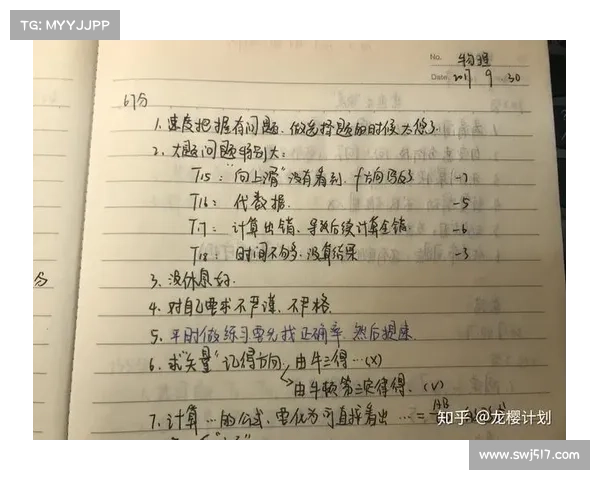 TG: MYYJJPP
No. 物理
Date. 2017 9 30
67分
1. 速度把握有问题. 做选择题的时候太慢了.
2. 大题问题特别大:
T15: "向上滑"没有看到. f方向写反了 -7
T16: 代数据. -5
T17: 计算出错. 导致后续计算全错. -6
T18: 时间不够多, 没算结果 -3
3. 没休息好.
分
4. 对自己要求不严谨. 不严格.
5. 平时做练习要先找正确率. 然后提速.
6. 求"矢量"记得方向. 由牛三得…(×)
由牛顿第三定律得. (√)
7. 计算…的公式. 要化为可直接看出 … = AB
知乎 @龙樱计划
www.swj517.com